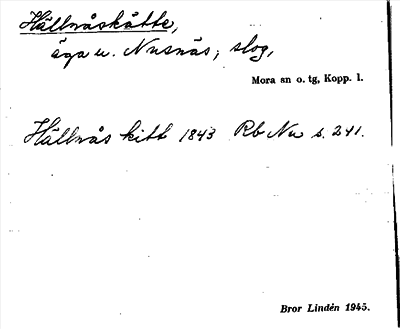 Hällnåskätte,
äga u. Nusnäs, skog,
Mora sn o. tg, Kopp. l.
Hällnås kitt 1843 Rb Nu s. 241.
Bror Lindén 1945.